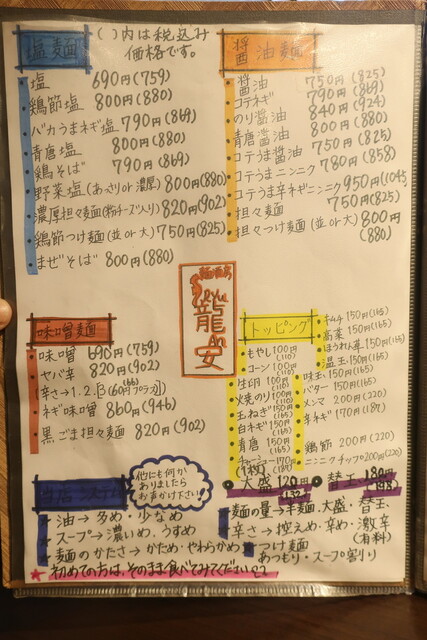 塩麺
( )内は税込み
価格です。
塩 690円(759)
鶏節塩 800円(880)
バカうまネギ塩 790円(869)
青唐塩 800円(880)
鶏そば 790円(869)
野菜塩(あっさりor濃厚) 800円(880)
濃厚担々麺(粉チーズ入り) 820円(902)
鶏節つけ麺(並or大) 750円(825)
まぜそば 800円(880)
醤油麺
醤油 750円(825)
コテネギ 790円(869)
のり醤油 840円(924)
青唐醤油 800円(880)
コテうま醤油 750円(825)
コテうまニンニク 780円(858)
コテうま辛ネギニンニク 950円(1045)
担々麺 750円(825)
担々つけ麺(並or大) 800円
(880)
龍
安
味噌麺
味噌 690円(759)
ヤバ辛 820円(902)
(辛さ→1.2.3(60円プラス))
(66)
ネギ味噌 860円(946)
黒ごま担々麺 820円(902)
トッピング
もやし 100円
(110)
コーン 100円
(110)
生卵 100円
(110)
焼のり 100円
(110)
玉ねぎ 150円
(165)
白ネギ 150円
(165)
青唐 150円
(165)
チャーシュー 170円
(1枚) (187)
キムチ 150円(165)
高菜 150円(165)
ほうれん草 150円(165)
温玉 150円(165)
味玉 150円(165)
バター 150円(165)
メンマ 200円(220)
辛ネギ 170円(187)
鶏節 200円(220)
ニンニクチップ 200円(220)
大盛 120円
(132)
替玉 180円
(198)
他にも何か
ありましたら
お声かけ下さい!
油→多め・少なめ
スープ→濃いめ、うすめ
麺のかたさ→かため・やわらかめ
麺の量→半麺・大盛・替玉
辛さ→控えめ・辛め・激辛
(有料)
つけ麺
あつもり・スープ割り
★初めての方は、そのまま食べてみてください